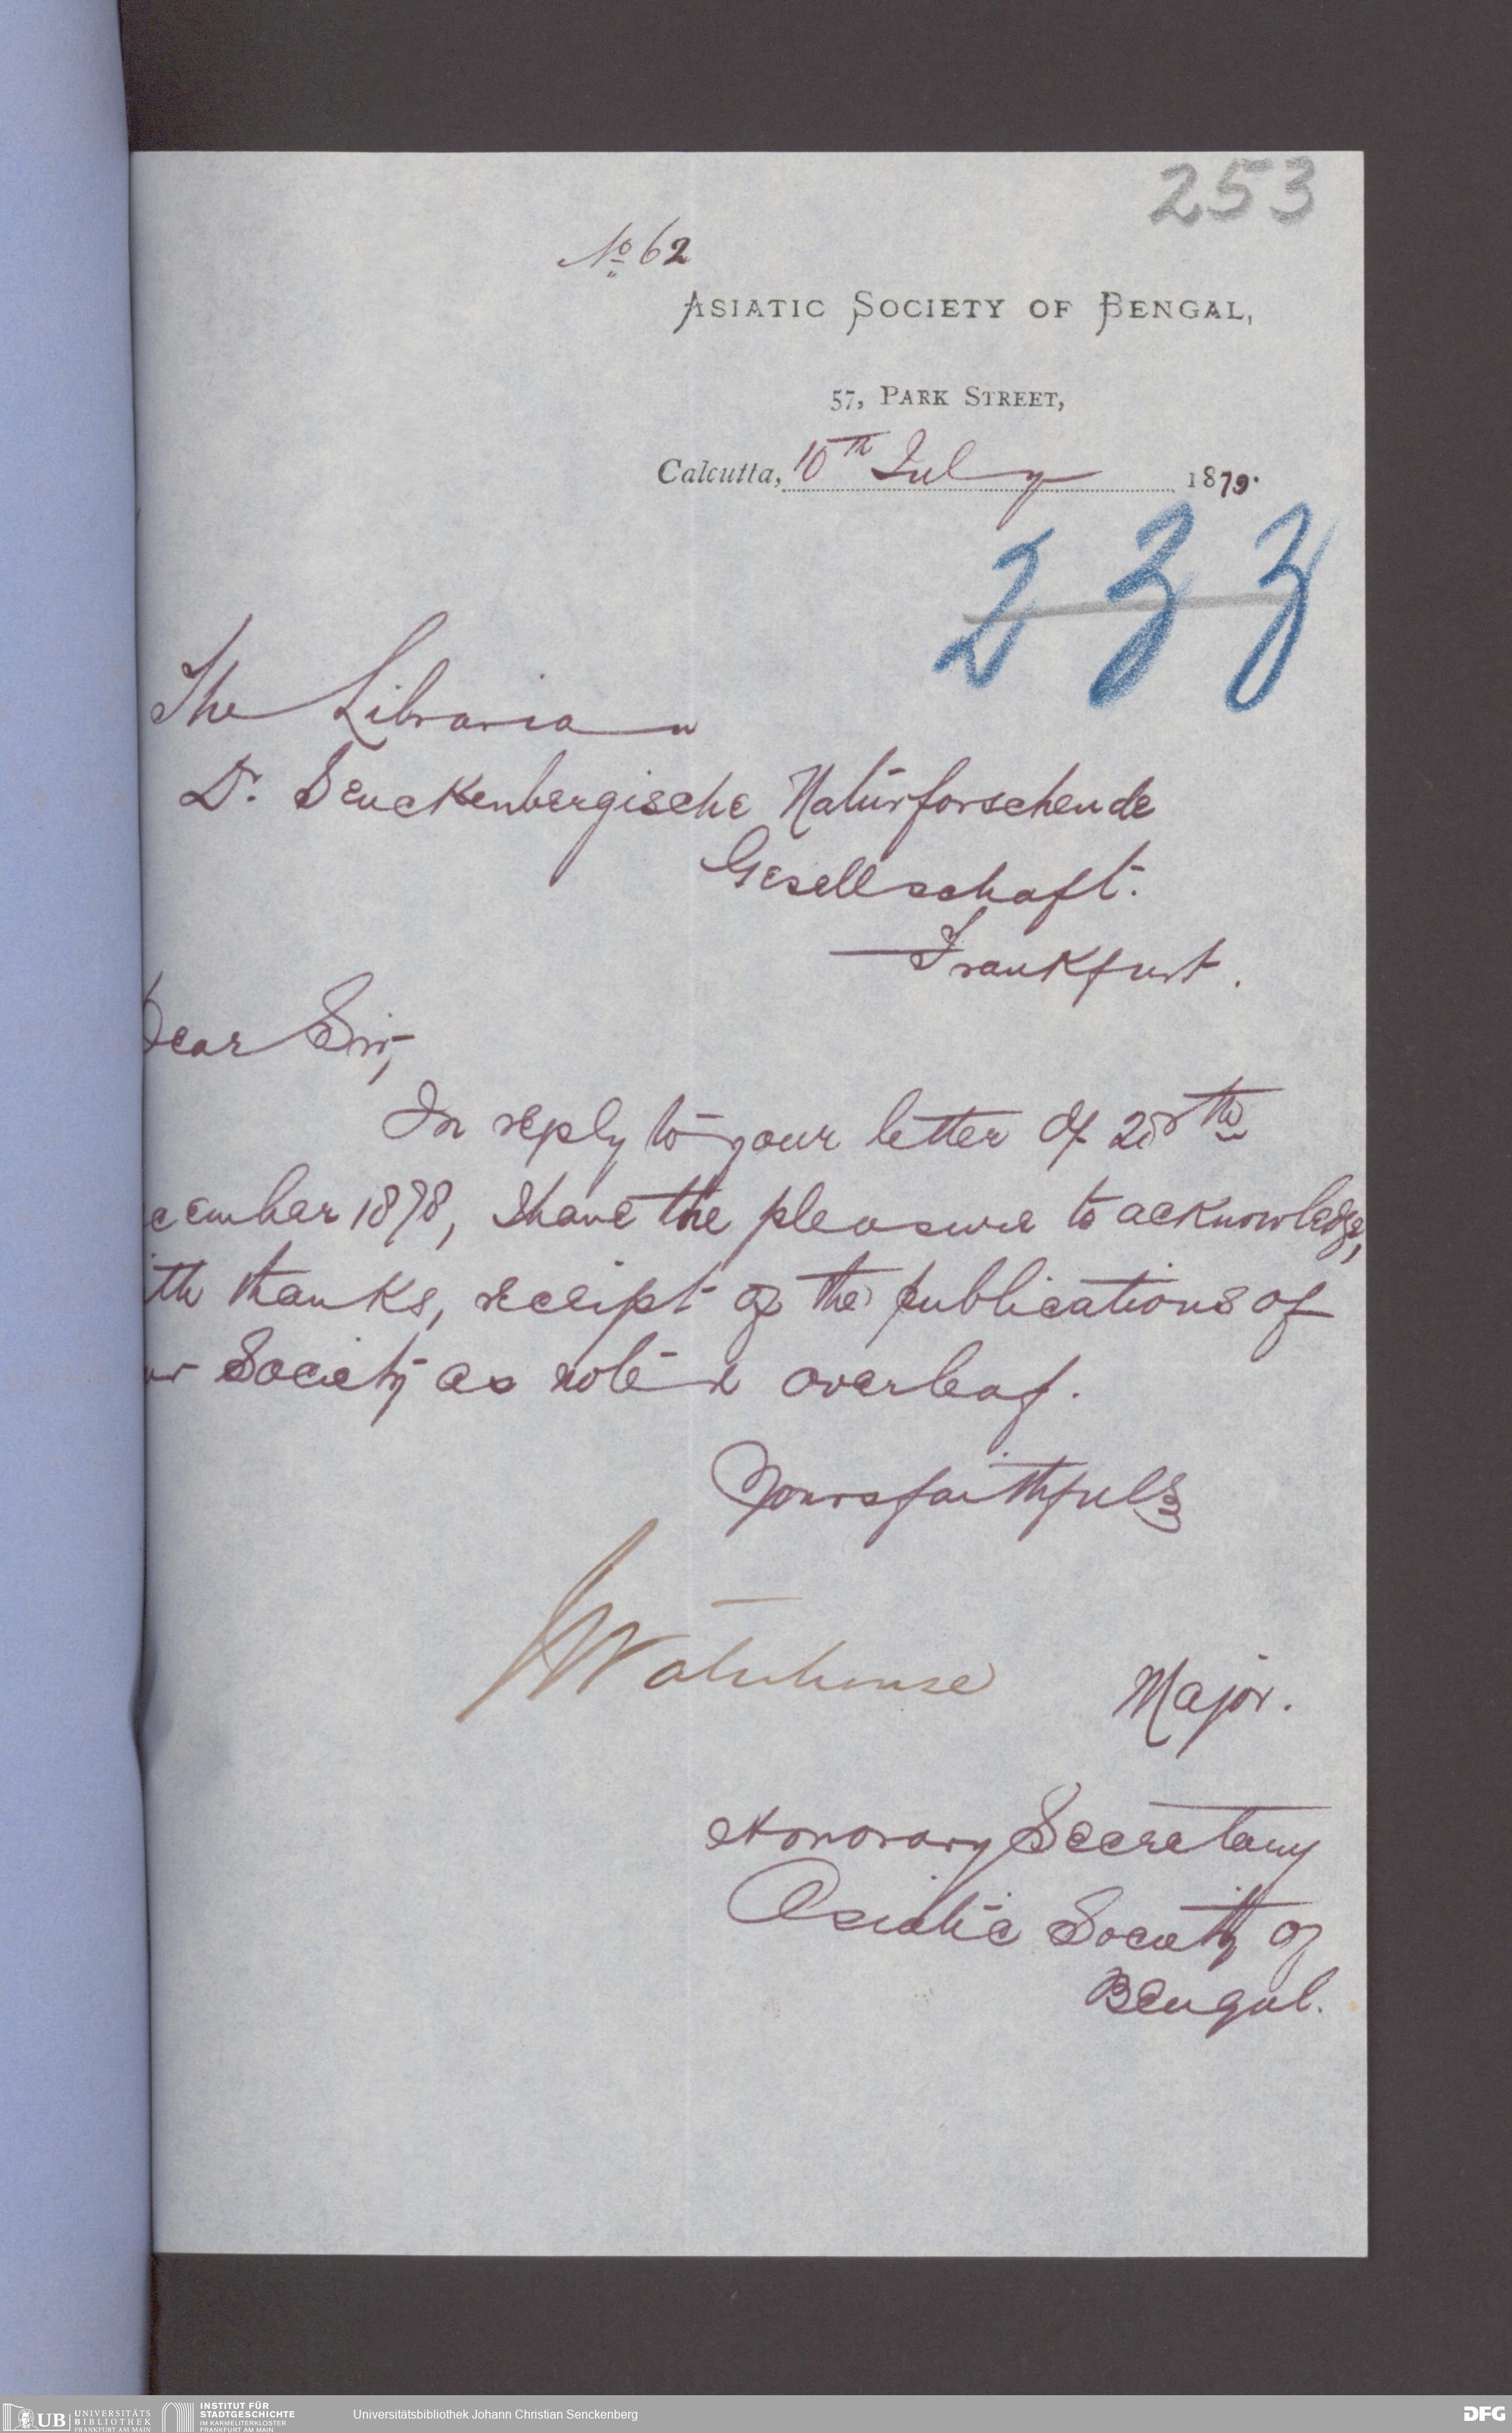 253
No 62
ASIATIC SOCIETY OF BENGAL,
57, PARK STREET,
Calcutta, 10th July 1879.
233
The Librarian
Dr. Senckenbergische Natürforschende
Gesellschaft.
Frankfurt.
Dear Sir,
In reply to your letter of 28th
ecember 1878, I have the pleasure to acknowledge,
ith thanks, receipt of the publications of
ur Society as noted overleaf.
Yours faithfully
J Waterhouse Major.
Honorary Secretary
Asiatic Society of
Bengal.
UB UNIVERSITÄTS BIBLIOTHEK FRANKFURT AM MAIN
INSTITUT FÜR STADTGESCHICHTE IM KARMELITERKLOSTER FRANKFURT AM MAIN
Universitätsbibliothek Johann Christian Senckenberg
DFG